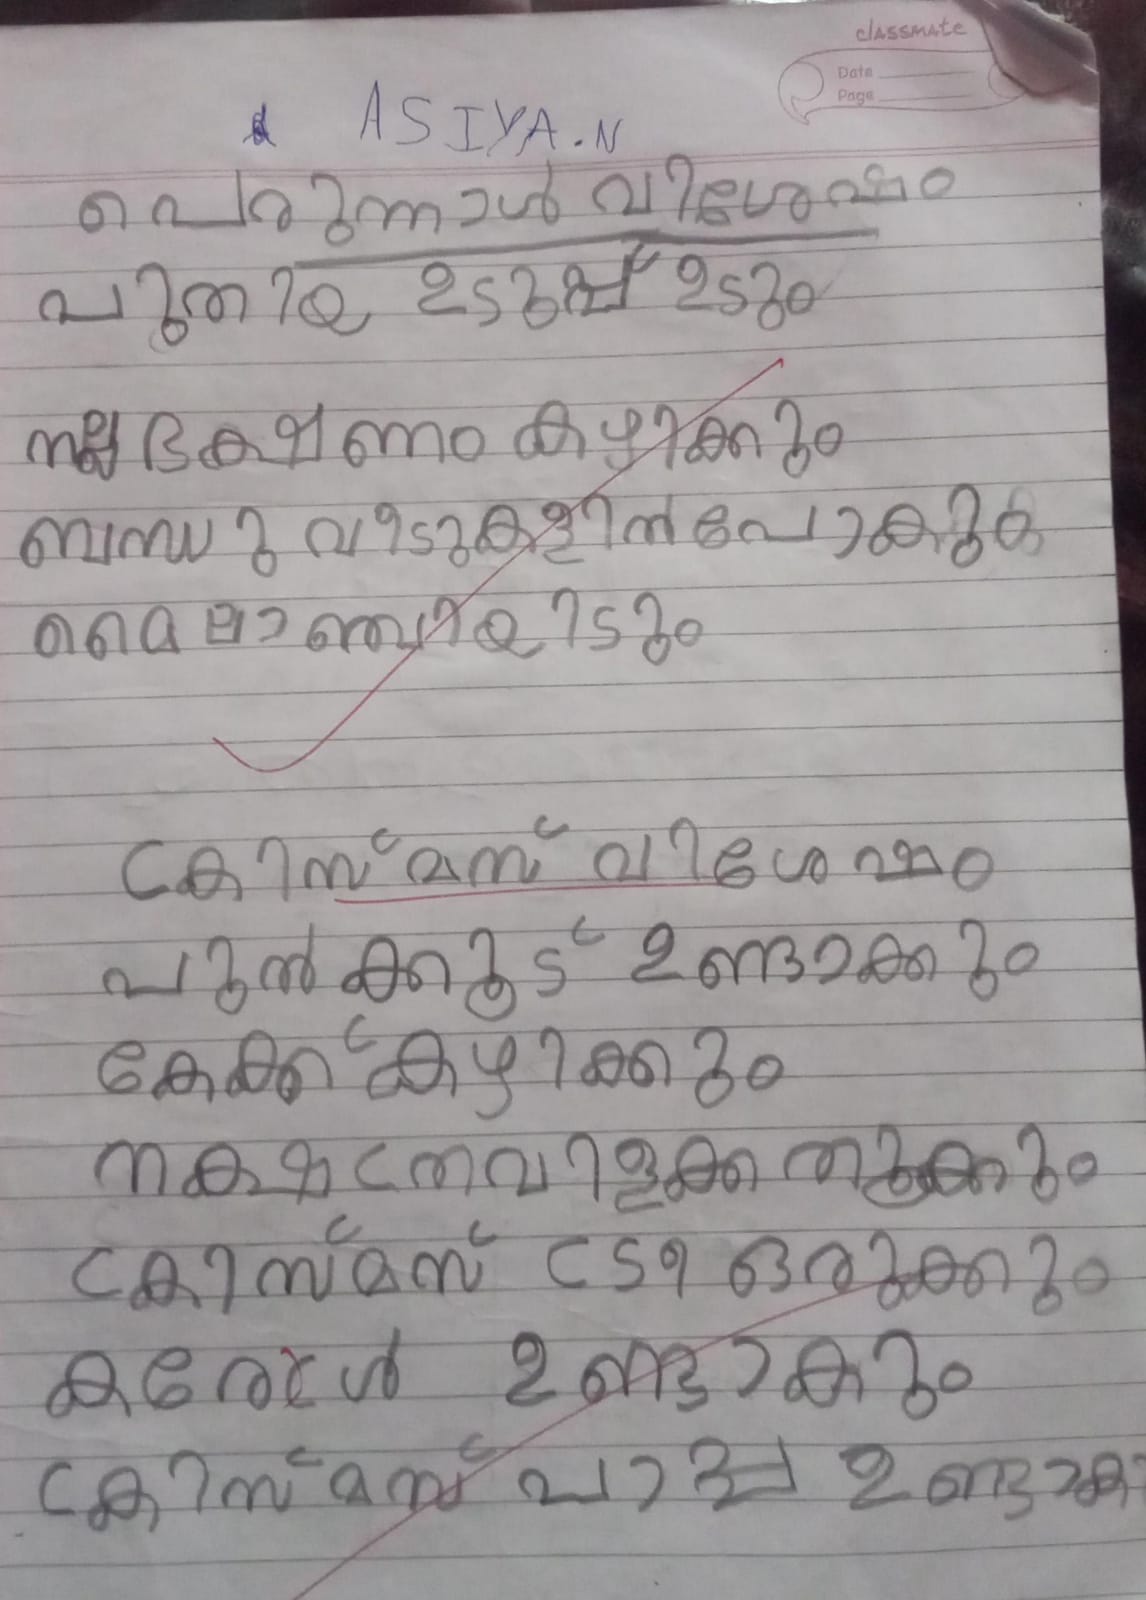 classmate
Date
Page
ASIYA.N
പെരുന്നാൾ വിശേഷം
പുതിയ ഉടുപ്പ് ഉടും
നല്ല ഭകഷണം കഴിക്കും
ബന്ധു വീടുകളിൽ പോകുക
മൈലാഞ്ചിയിടും
ക്രിസ്മസ് വിശേഷം
പുൽക്കുട് ഉണ്ടാക്കും
കേക്ക് കഴിക്കും
നകഷത്രവിളക്ക തുക്കും
ക്രിസ്മസ് ട്രി ഒരുക്കും
കരോൾ ഉണ്ടാകും
ക്രിസ്മസ് പാപ്പ ഉണ്ടാക